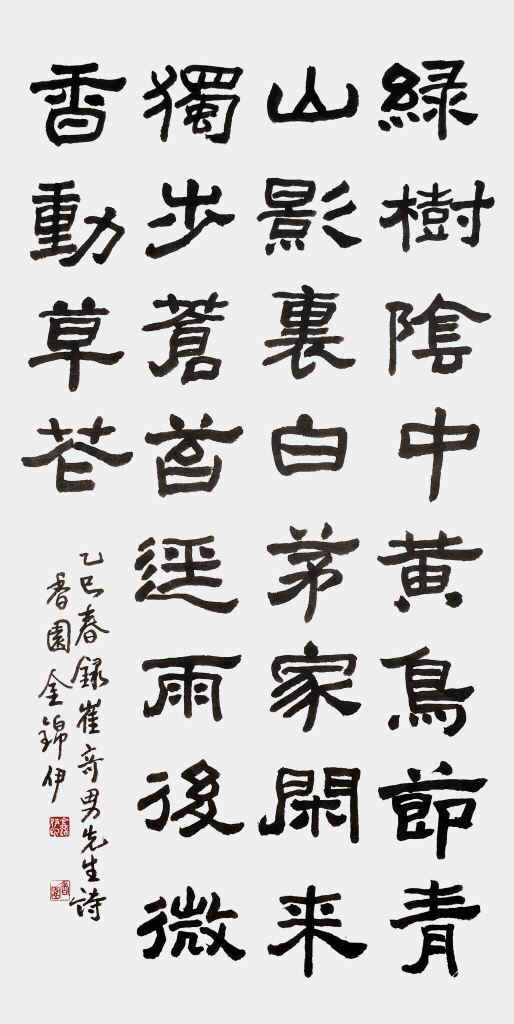 緑樹陰中黄鳥節青
山影裏白茅家閑来
獨步蒼苔逕雨後微
香動草花
乙巳春録崔奇男先生诗
香園 金錦伊